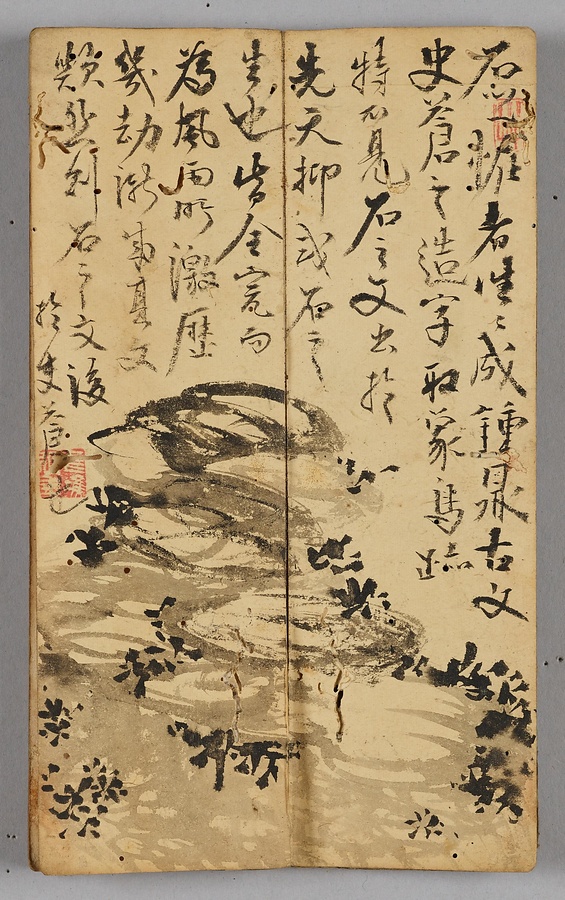 石之怪者往〻成鍾鼎古文
史蒼之造字取象鳥跡
特不見石之文出於
先天抑或石之
生也皆全完而
為風雨所激歷
幾劫漸文
類然則石之文後
於史蒼也